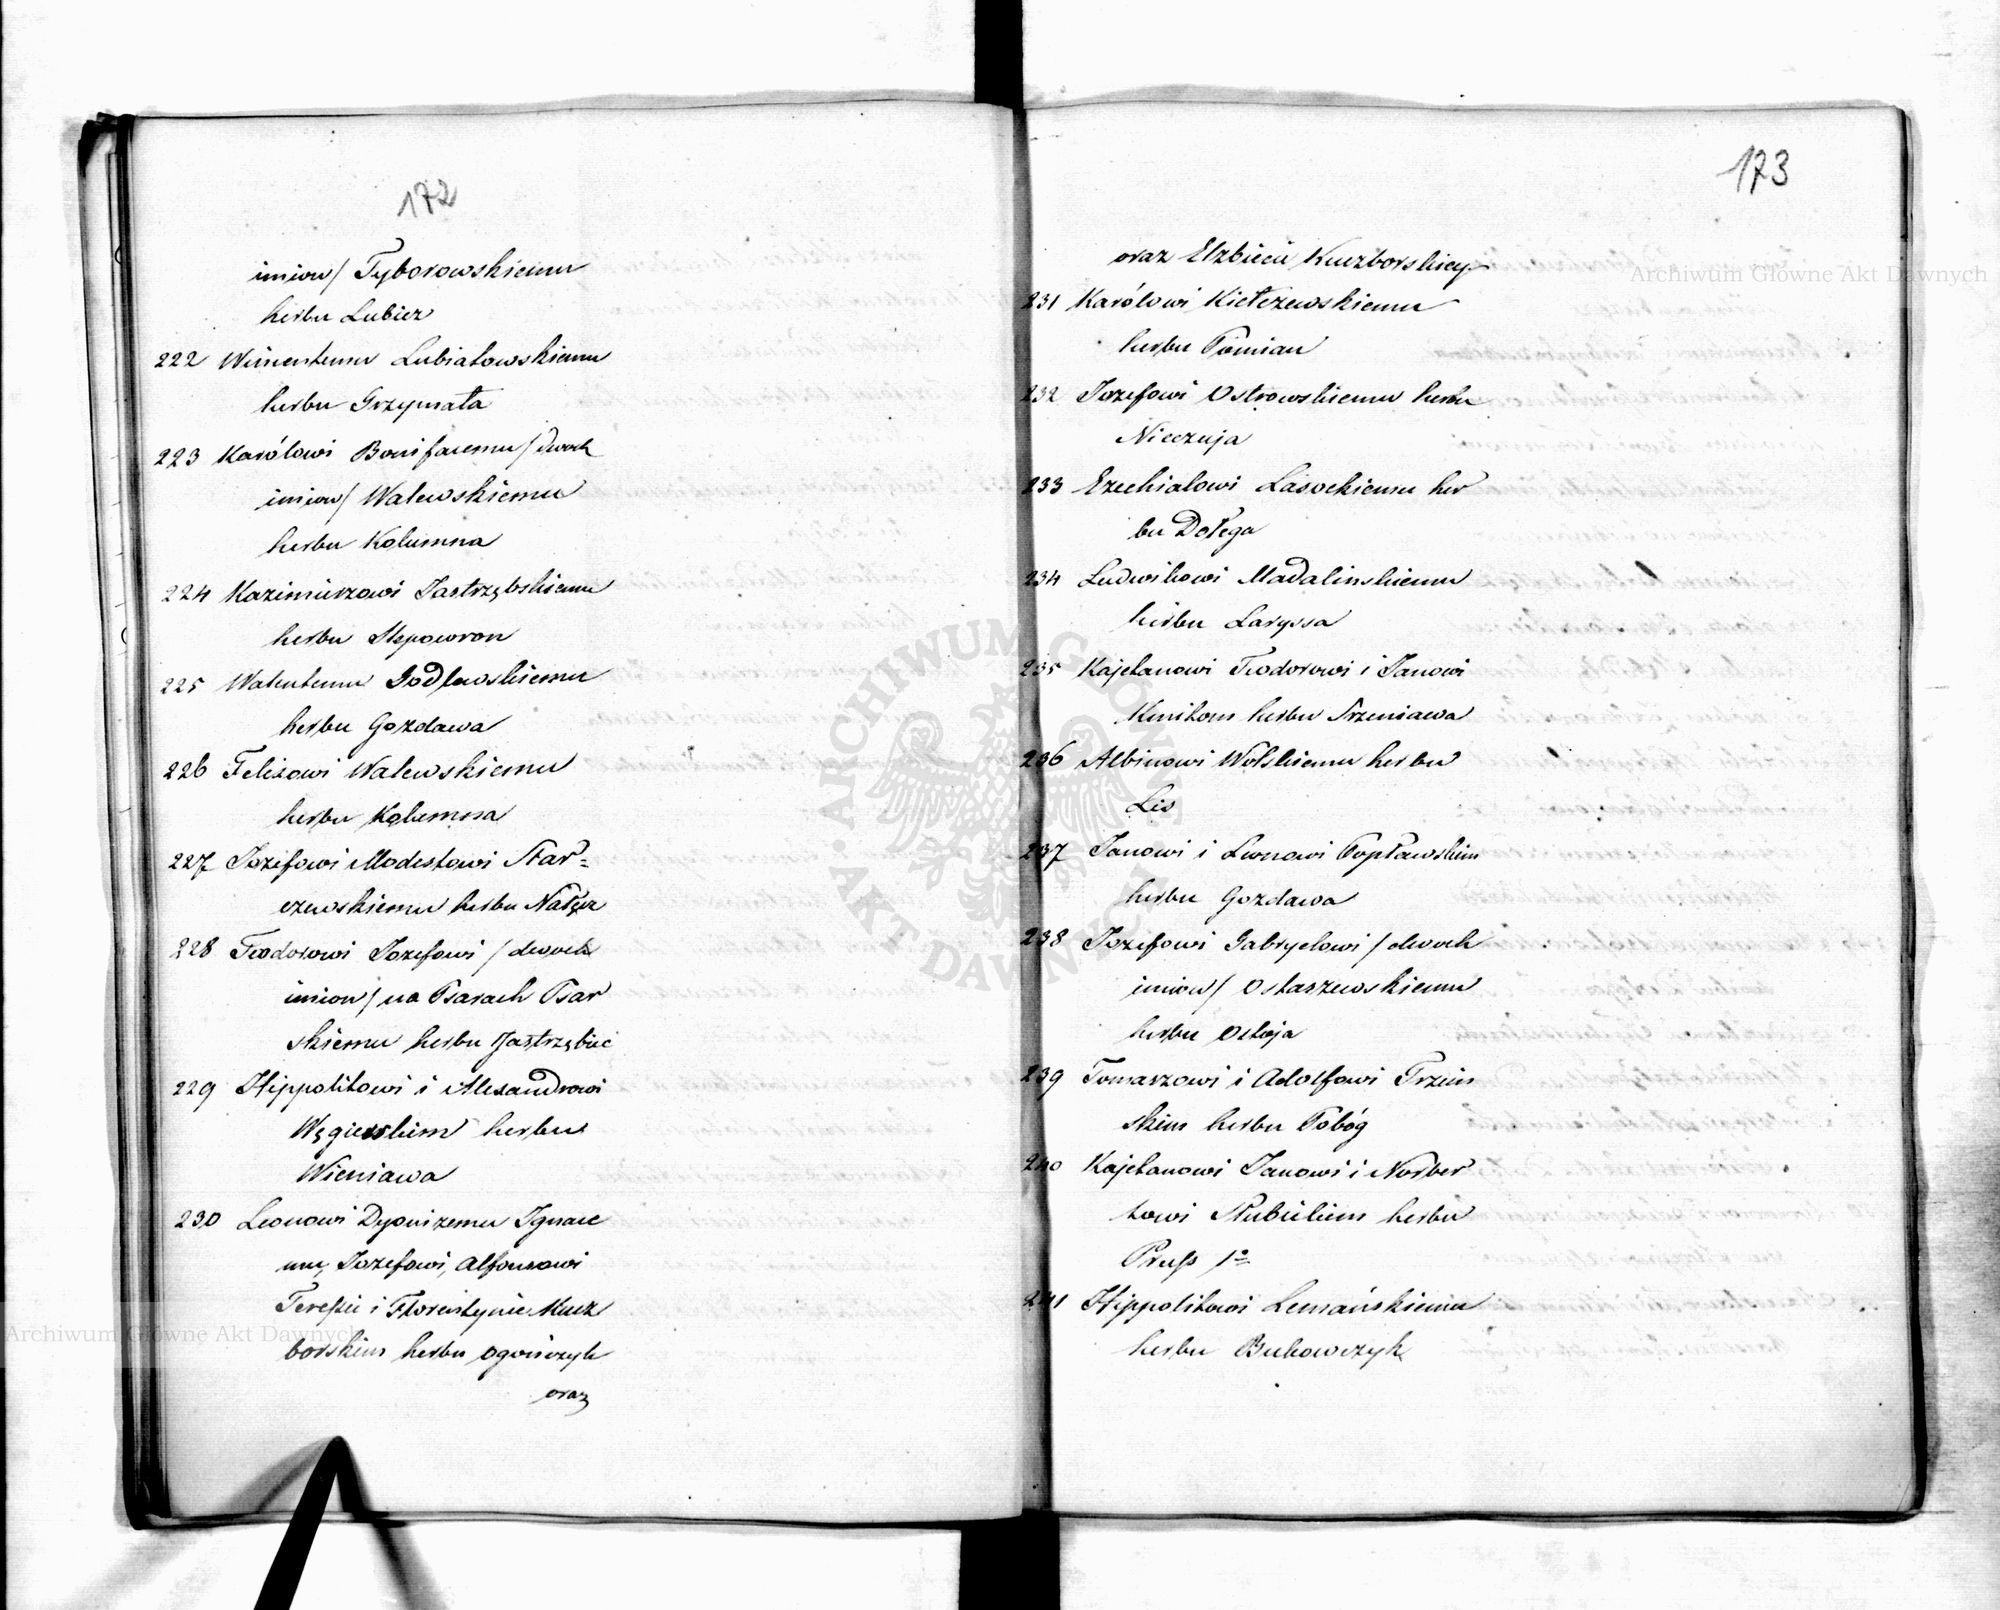 172
imion/ Tyborowskiemu
herbu Lubicz
222 Wincentemu Lubiatowskiemu
herbu Grzymała
223 Karólowi Bonifacemu /dwoch
imion/ Walewskiemu
herbu Kolumna
224 Kazimierzowi Jastrzębskiemu
herbu Slepowron
225 Walentemu Godlewskiemu
herbu Gozdawa
226 Felixowi Walewskiemu
herbu Kolumna
227 Jozefowi Modestowi Star=
czewskiemu herbu Nałęcz
228 Teodorowi Jozefowi /dwoch
imion/ na Psarach Psar
skiemu herbu Jastrzębiec
229 Hippolitowi i Alexandrowi
Węgierskim herbu
Wieniawa
230 Leonowi Dyonizemu Ignace
mu, Jozefowi, Alfonsowi
Teressie i Florentynie Kucz
borskim herbu Ogończyk
oraz
173
oraz Elzbiecie Kuczborskiey
231 Karólowi Kiełczewskiemu
herbu Pomian
232 Jozefowi Ostrowskiemu herbu
Nieczuja
233 Ezechialowi Lasockiemu her
bu Dołęga
234 Ludwikowi Madalinskiemu
herbu Laryssa
235 Kajetanowi Teodorowi i Janowi
Kmitom herbu Srzeniawa
236 Albinowi Wolskiemu herbu
Lis
237 Janowi i Leonowi Popławskim
herbu Gozdawa
238 Jozefowi Gabryelowi /dwoch
imion/ Ostaszewskiemu
herbu Ostoja
239 Tomaszowi i Adolfowi Trzcin
skim herbu Pobóg
240 Kajetanowi Janowi i Norber
towi Skubickim herbu
Pruss 1º
241 Hippolitowi Lemańskiemu
herbu Bukowczyk
Archiwum Główne Akt Dawnych
Archiwum Główne Akt Dawnych
ARCHIWUM GŁÓWNE AKT DAWNYCH